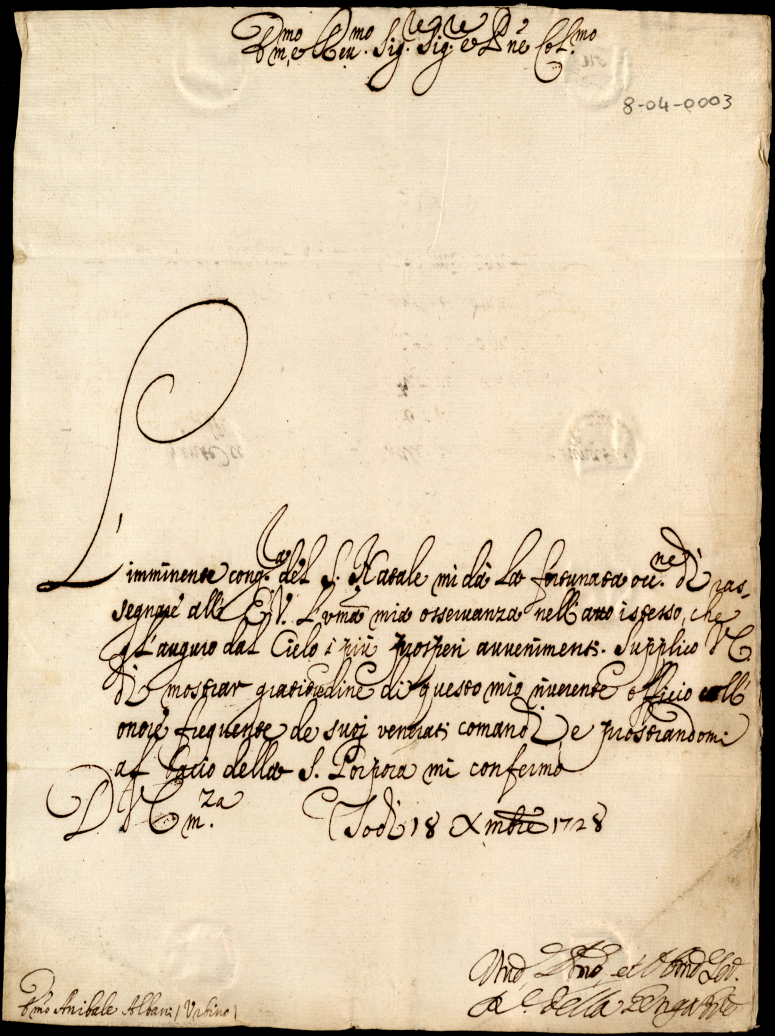 Em.mo e Rev.mo Sig.re Sig.re e P.ne Col.mo
8-04-0003
L'imminente cong.ra del S. Natale mi dà La fortunata occ.ne di ras-
segnare all' E.V. L'um.ma mia osservanza nell'atto istesso, che
L'auguro dal Cielo i più prosperi avvenimenti. Supplico V.E.
di mostrar gratitudine di questo mio riverente officio coll'
onore frequente de suoi venerati comandi, e prostrandomi
al bacio della S. Porpora mi confermo
D. V. Em.za Todi 18 Xmbre 1728
Um.o et Obb.mo
della Penga
Em.mo Anibale Albani / Urbino /